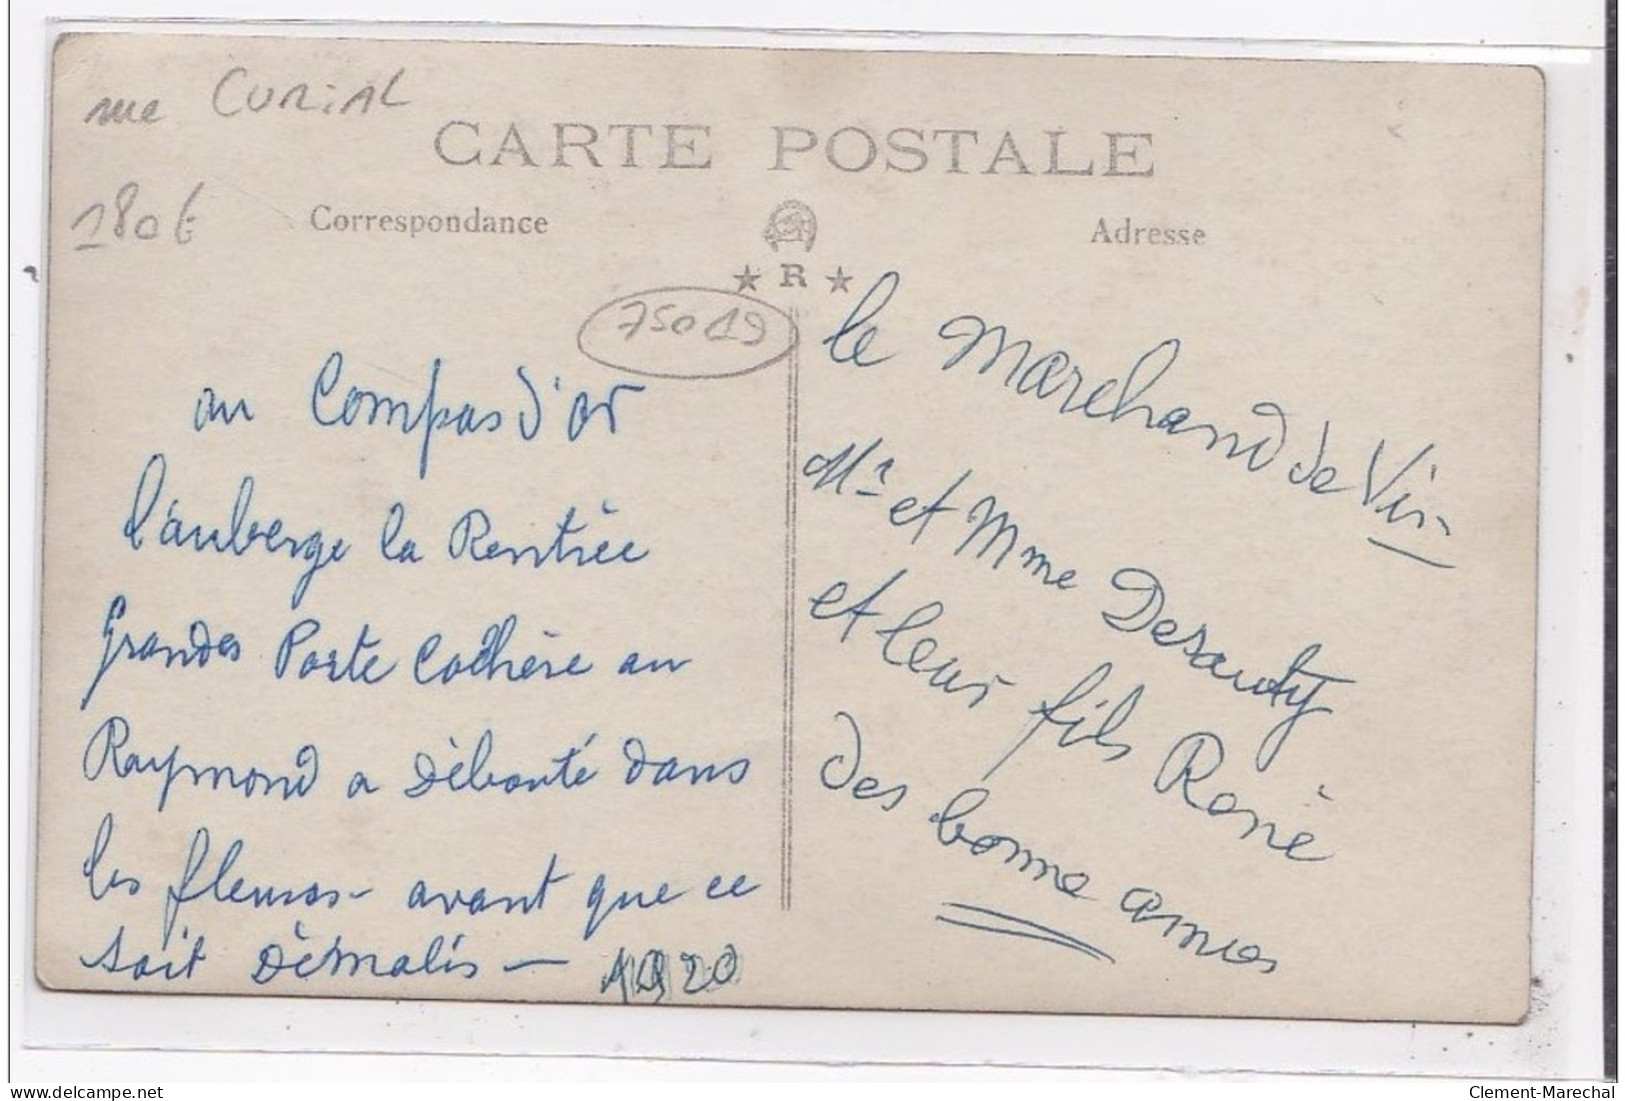 rue CURiAL
CARTE POSTALE
180€
Correspondance
Adresse
★ R ★
75019
au Compas d'or
l'auberge la Rentrèe
Grandes Porte Cochère au
Raymond a Dèbouté dans
les fleuros - avant que ce
soit Dèmolis - 1920
le Marchand de Vin
Mr et Mme Desauty
et leur fils Renè
des bonne amies
delcampe.net
Clement-Marechal